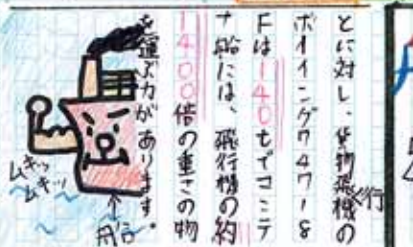 とに対し、貨物飛行機の
ボーイング747ー8
Fは140tでコンテ
ナ船には、飛行機の約
1400倍の重さの物
を運ぶ力があります。
ムキッ
ムキッ
船